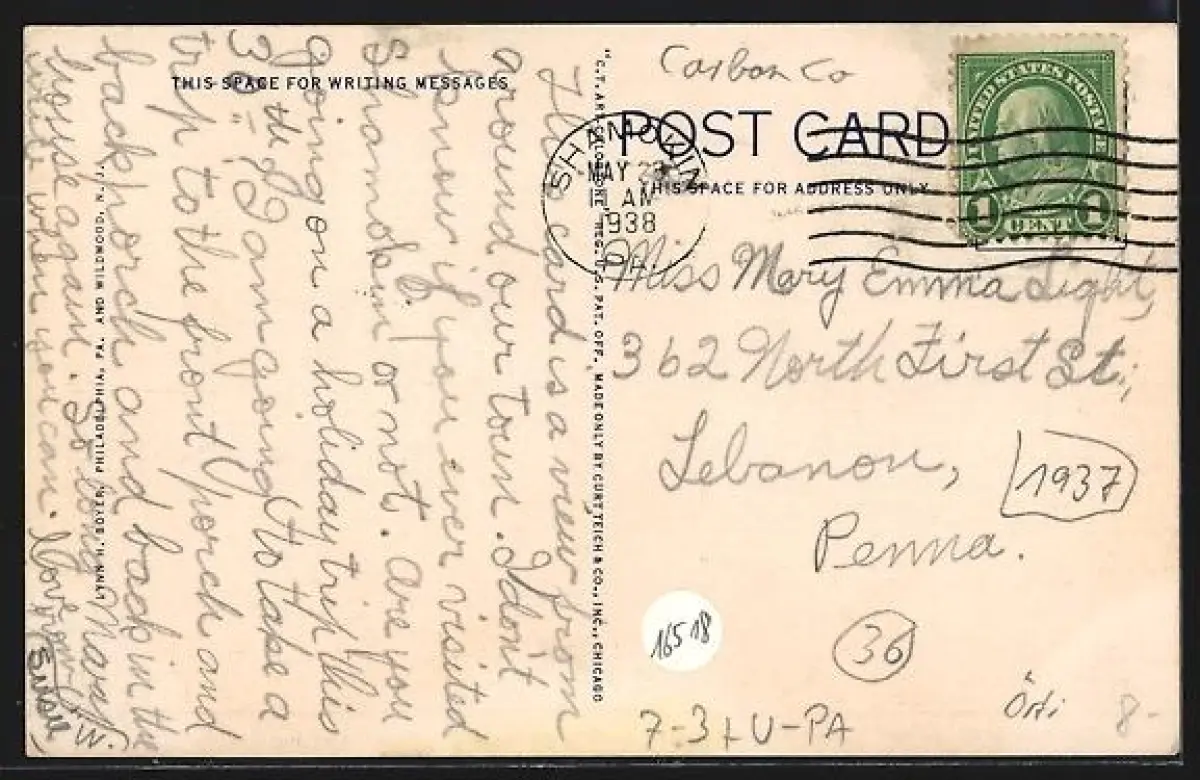 THIS SPACE FOR WRITING MESSAGES
This card is a view from
around our town. I don't
know if you ever visited
Shamokin or not. Are you
going on a holiday trip this
30th? I am going to take a
trip to the front porch and
back porch and back in the
house again. So long
write when you can. Love
LYNN H. BOYER, PHILADELPHIA, PA. AND WILDWOOD, N. J.
REG. U.S. PAT. OFF. MADE ONLY BY CURT TEICH & CO., INC., CHICAGO
Carbon Co
POST CARD
THIS SPACE FOR ADDRESS ONLY
SHAMOKIN
MAY
AM
1938
PA.
UNITED STATES POSTAGE
1 CENT 1
Miss Mary Emma Light,
362 North First St.,
Lebanon,
Penna.
1937
16518
36
7-3+U-PA
8-